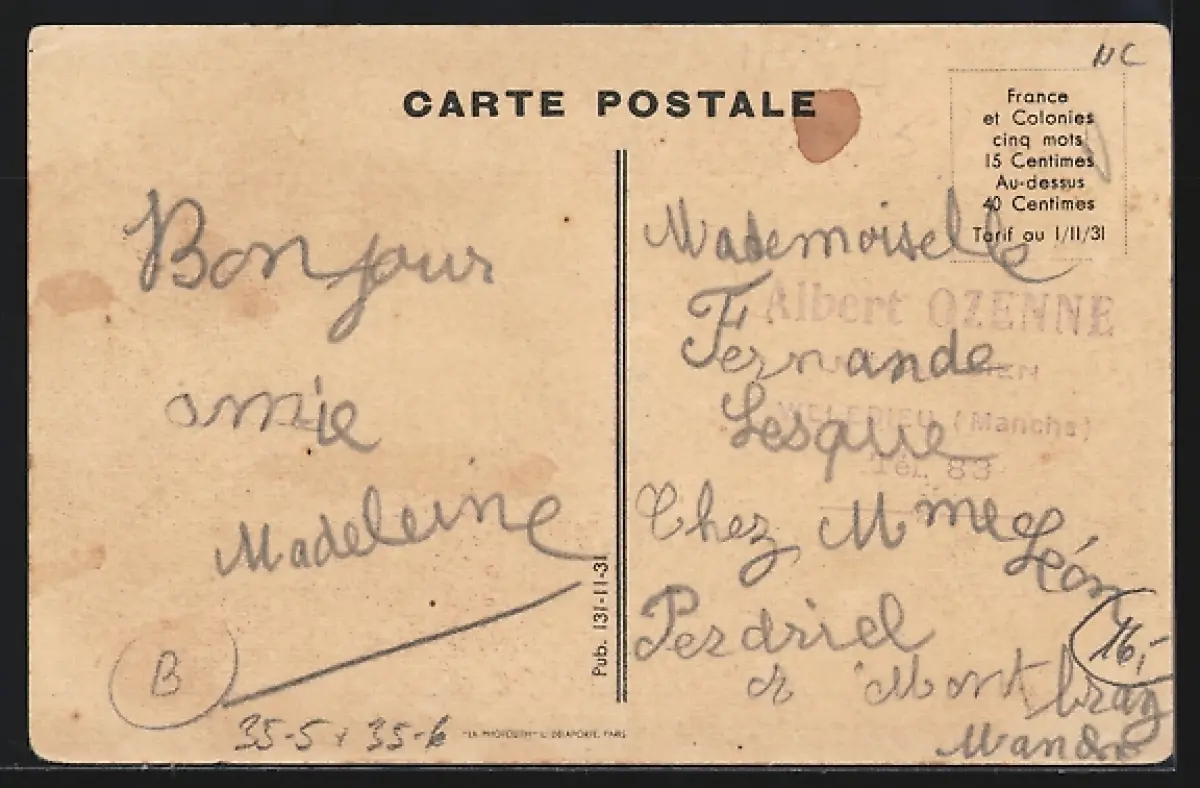 NC
CARTE POSTALE
France
et Colonies
cinq mots
15 Centimes
Au-dessus
40 Centimes
Tarif au 1/11/31
Bonjour
amie
Madeleine
Mademoiselle
Albert OZENNE
Fernande
Lesque
(Manche)
Tél. 83
Chez Mme Léon
Perdriel
à Montbray
Manche
Pub. 131-11-31
B
16,-
35-5 35-6
"LA PHOTOLITH" L. DELAPORTE, PARIS